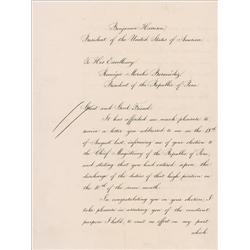 Benjamin Harrison
President of the United States of America
To His Excellency
Remigio Morales Bermúdez,
President of the Republic of Peru
Great and Good Friend:
It has afforded me much pleasure to
receive a letter you addressed to me on the 18th
of August last, informing me of your election to
the Chief Magistracy of the Republic of Peru,
and stating that you had entered upon the
discharge of the duties of that high position on
the 10th of the same month.
In congratulating you on your election, I
take pleasure in assuring you of the constant
purpose I hold, to omit no effort on my part
which